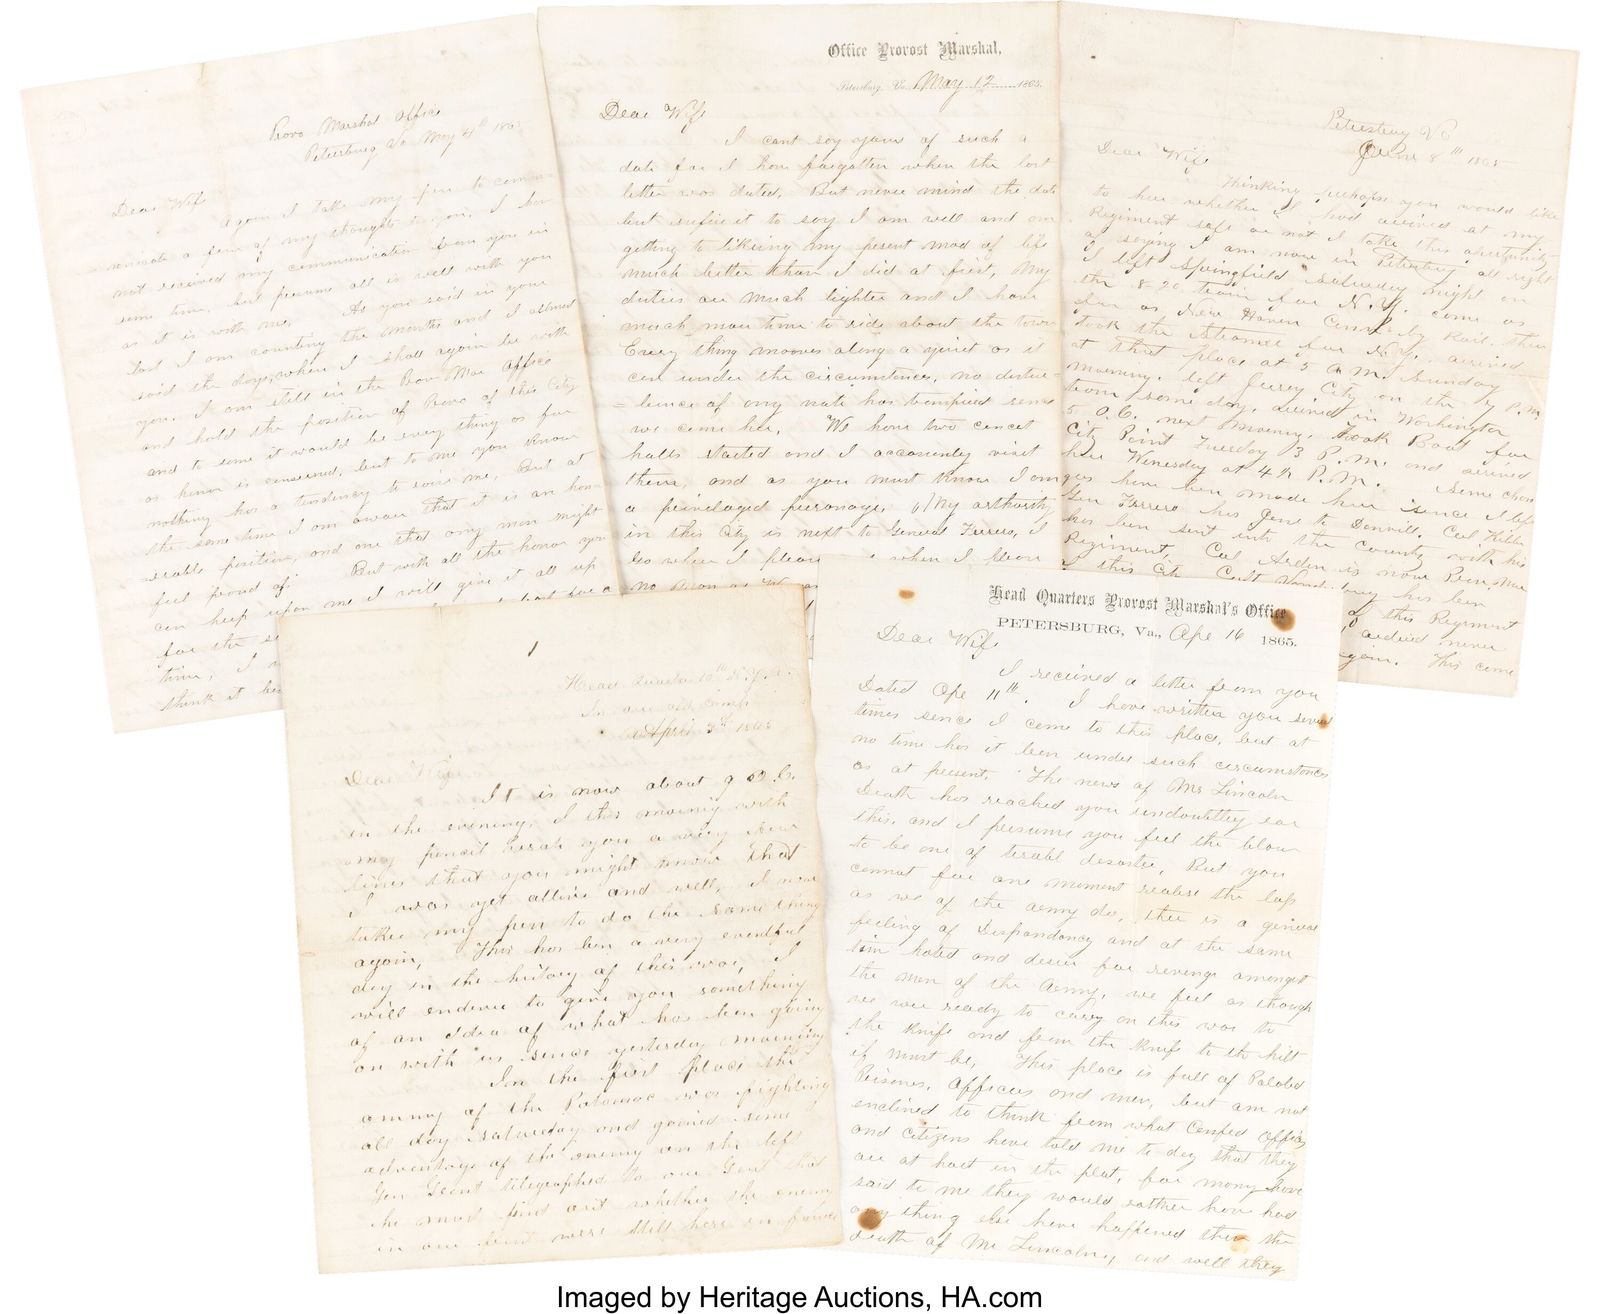 Provo Marshal Office
Petersburg Va May 4th 1865
Dear Wife
Again I take my pen to commu-
nicate a few of my thoughts to you. I hav
not received any communication from you in
some time, but presume all is well with you
as it is with me. As you said in your
last I am counting the months and I almost
said the days, when I shall again be with
you. I am still in the Provo Mar Office
and hold the position of Provo of this City
and to some it would be every thing as far
as honor is concerned, but to me you know
nothing has a tendency to me, But at
the same time I am aware that it is an hon-
erable position, and one that any man might
feel proud of. But with all the honor you
can heap upon me I will give it all up
for the
time, I
think it
Office Provost Marshal,
Petersburg, Va. May 12 1865.
Dear Wife
I cant say yours of such a
date for I have forgotten when the last
letter was dated. But never mind the date
but sufice it to say I am well and am
getting to likeing my present mod of life
much better than I did at first, My
duties are much lighter and I have
much more time to ride about the town
Every thing mooves along a quiet as it
can under the circumstances, no distur-
= bence of any note has transpired sence
we came here. We have two concert
halls started and I accasionly visit
them, and as you must know I am
a priveladged personage, My arthority
in this City is next to General Ferrero, I
Go where I please when I please
no
Petersburg Va
June 8th 1865
Dear Wife
Thinking perhaps you would like
to hear whether I had arrived at my
Regiment safe or not I take this
of saying I am now in Petersburg all right
I left Springfield saturday night on
the 8-20 train for N.Y. come as
far as New Haven Conn by Rail, then
took the Steamer for N.Y. arrived
at that place at 5 A.M. Sunday
morning. left Jersey City on the 7 P.M.
train same day, arrived in Washington
5 O.C. next morning. took Boat for
City Point Tuesday 3 P.M. and arrived
here Wenesday at 4 P.M. Some chan
ges have ben made here since I left
Gen Ferrero has gone to Danvill. Col
has ben sent into the County with his
Regiment, Col is now
this City
has ben
of this Regiment
ordered never
again. This come
1
Head Quarters
In our old camp
April 3d 1865
Dear Wife
It is now about 9 O.C.
in the evening, I this morning with
my pencil wrote you a very few
lines that you might know that
I was yet allive and well, I now
take my pen to do the same thing
again, This has ben a very eventful
day in the history of this war, I
will endevor to give you something
of an idea of what has ben going
on with us sence yesterday morning
In the first place the
ammy of the Potomac was fighting
all day saturday and gained some
advantage of the enemy on the left
Gen Grant telegraphed to our Genl that
he must find out whether the enemy
in our front were still here in force
Head Quarters Provost Marshal's Office
PETERSBURG, Va., Ape 16 1865.
Dear Wife
I received a letter from you
Dated Ape 11th. I have written you several
times sence I come to this place, but at
no time has it been under such circumstances
as at present. The news of Mr Lincoln
Death has reached you undoubtley ear
this, and I persume you feel the blow
to be one of terabl desastee, But you
cannot for one moment realise the loss
as we of the army do, thee is a general
feeling of Dispondancy and at the same
tim hatred and desier for revenge amongst
the men of the Army, we feel as though
we wer ready to carry on this war to
the Knife and from the Knife to the hilt
if must be, This place is full of Paroled
Prisones, Officers and men, but am not
enclined to think from what Confed Offices
and citizens have told me to day that they
are at hart in the plot, for many have
said to me they would rather have had
any thing else have happened then the
death of Mr Lincoln, and well they
Imaged by Heritage Auctions, HA.com